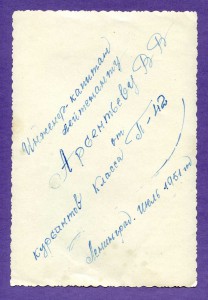 Инженер-капитан
лейтенанту
Арсентьеву В В
от
курсантов класса П-42
Ленинград. Июль 1961 г